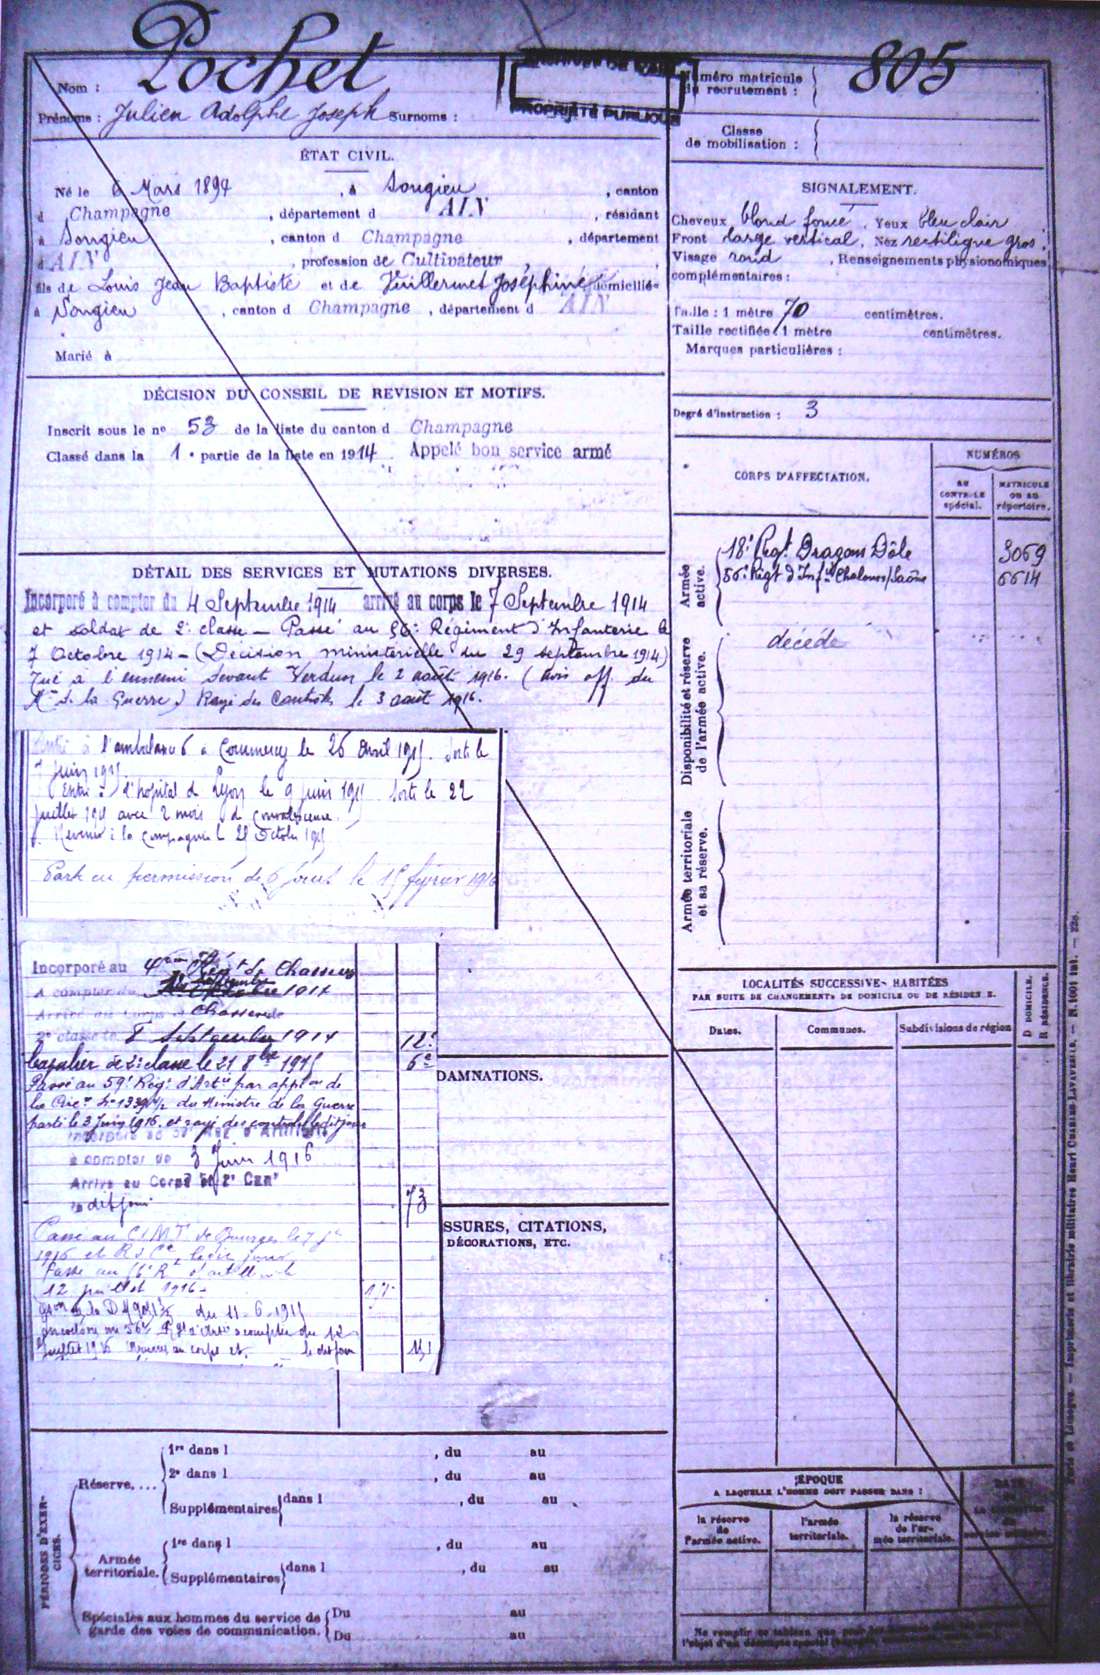 Pochet
Nom :
Prénoms : Julien Adolphe Joseph Surnoms :
ARCHIVES DE L'AIN
PROPRIÉTÉ PUBLIQUE
Numéro matricule du recrutement : 805
Classe de mobilisation :
ÉTAT CIVIL.
Né le 6 Mars 1894, à Songieu, canton
d Champagne, département d AIN, résidant
à Songieu, canton d Champagne, département
d AIN, profession de Cultivateur
fils de Louis Jean Baptiste et de Vuillermet Joséphine domiciliés
à Songieu, canton d Champagne, département d AIN
Marié à
SIGNALEMENT.
Cheveux blond foncé, Yeux bleu clair
Front large vertical, Nez rectiligne gros
Visage rond, Renseignements physionomiques
complémentaires :
Taille : 1 mètre 70 centimètres.
Taille rectifiée 1 mètre centimètres.
Marques particulières :
Degré d'instruction : 3
DÉCISION DU CONSEIL DE REVISION ET MOTIFS.
Inscrit sous le nº 53 de la liste du canton d Champagne
Classé dans la 1e partie de la liste en 1914. Appelé bon service armé
DÉTAIL DES SERVICES ET MUTATIONS DIVERSES.
Incorporé à compter du 4 Septembre 1914 arrivé au corps le 7 Septembre 1914
et soldat de 2e classe — Passé au 56e Régiment d'Infanterie le
7 Octobre 1914 — (Décision ministérielle du 29 septembre 1914)
Tué à l'ennemi devant Verdun le 2 août 1916. (avis off. du
Mre de la Guerre) Rayé des Contrôles le 3 aout 1916.
à l'ambulance 6 à Commercy le 26 avril 1915. Sorti le
juin 1915
Entré à l'hopital d Lyon le 9 juin 1915 Sorti le 22
juillet 1915 avec 2 mois d convalescence.
Revenu à la compagnie l Octobre 1915
Parti en permission de 6 jours le 15 février 1916
Incorporé au 4ème Régt de Chasseurs
A compter du 1914
Arrivé au corps Chasseur de
2e classe le Septembre 1914 12e
Cavalier de 2e classe le 21 8bre 1915 6e
Passé au 59e Régt d'Artie par appon de
la Circre du Ministre de la Guerre
parti le 3 Juin 1916. et rayé des controles le dit jour
à compter de 3 Juin 1916
Arrivé au Corps et 2e Can
le dit jour 73
Passé au C.I.M.T de Bourges le 7
1916
12 juillet 1916
du 11-6-1915
à compter du 12
Juillet 1916 Arrivé au corps et le dit jour
DAMNATIONS.
SSURES, CITATIONS,
DÉCORATIONS, ETC.
CORPS D'AFFECTATION.
NUMÉROS
AU CONTROLE spécial.
MATRICULE OU AU répertoire.
Armée active.
18e Régt Dragons Dôle 3069
56e Régt d'Infie Chalons s/Saône 6614
Disponibilité et réserve de l'armée active.
décédé
Armée territoriale et sa réserve.
LOCALITÉS SUCCESSIVES HABITÉES
PAR SUITE DE CHANGEMENTS DE DOMICILE OU DE RÉSIDENCE.
Dates.
Communes.
Subdivisions de région
D DOMICILE.
R RÉSIDENCE.
PÉRIODES D'EXERCICES.
Réserve....
1re dans l , du au
2e dans l , du au
Supplémentaires dans l , du au
Armée territoriale.
1re dans l , du au
Supplémentaires dans l , du au
Spéciales aux hommes du service de garde des voies de communication.
Du au
Du au
ÉPOQUE
A LAQUELLE L'HOMME DOIT PASSER DANS :
la réserve de l'armée active.
l'armée territoriale.
la réserve de l'armée territoriale.
DATE
Paris et Limoges. — Imprimerie et librairie militaires Henri CHARLES-LAVAUZELLE.